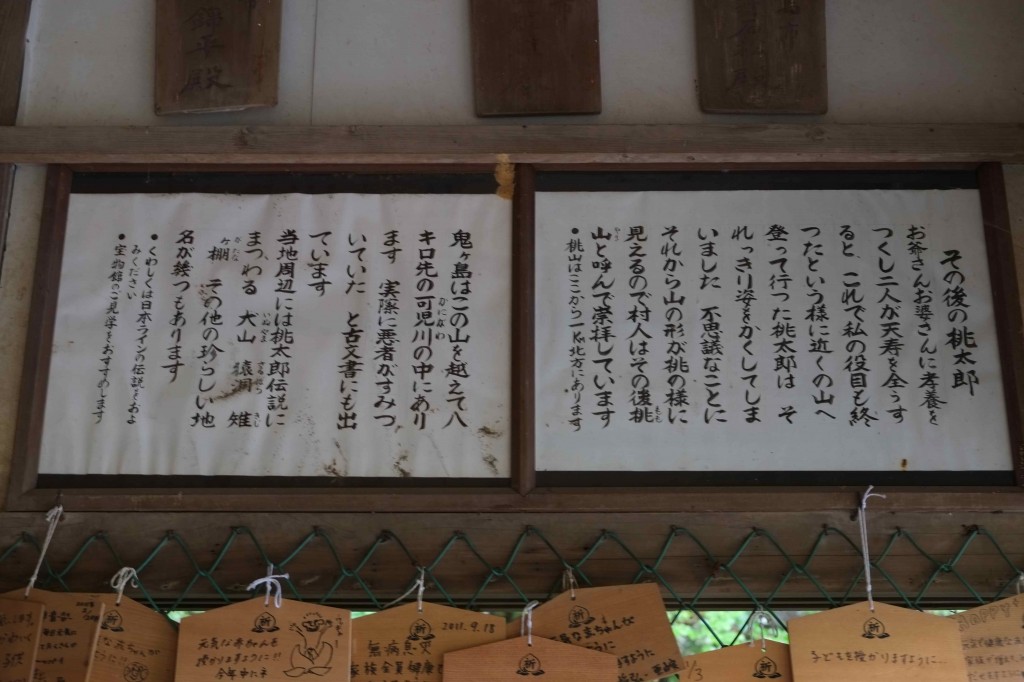 その後の桃太郎
お爺さんお婆さんに孝養を
つくし二人が天寿を全うす
ると これで私の役目も終
つたという様に近くの山へ
登って行った桃太郎は そ
れっきり姿をかくしてしま
いました 不思議なことに
それから山の形が桃の様に
見えるので村人はその後桃
山と呼んで崇拝しています
●桃山はここから一K北方にあります
鬼ヶ島はこの山を越えて八
キロ先の可児川の中にあり
ます 実際に悪者がすみつ
いていた と古文書にも出
ています
当地周辺には桃太郎伝説に
まつわる 犬山 猿洞 雉
ヶ棚 その他の珍らしい地
名が幾つもあります
●くわしくは日本ラインの伝説をおよ
みください
●宝物館のご見学をおすすめします
祈
元気な赤ちゃんを
授かりますように!!
祈
2015.9.18
無病息災
家族全員健康
祈
祈
祈
祈
子どもを授かりますように…